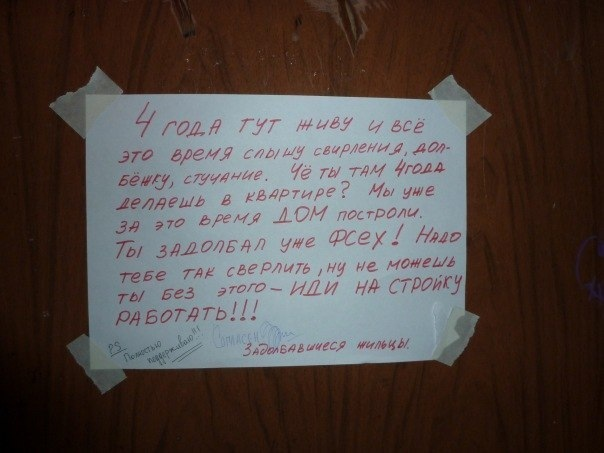 4 ГОДА ТУТ ЖИВУ И ВСЁ
ЭТО ВРЕМЯ СЛЫШУ СВИРЛЕНИЯ, ДОЛ-
БЁЖКУ, СТУЧАНИЕ. ЧЁ ТЫ ТАМ 4 ГОДА
ДЕЛАЕШЬ В КВАРТИРЕ? МЫ УЖЕ
ЗА ЭТО ВРЕМЯ ДОМ ПОСТРОЛИ.
ТЫ ЗАДОЛБАЛ УЖЕ ФСЕХ! НАДО
ТЕБЕ ТАК СВЕРЛИТЬ, НУ НЕ МОЖЕШЬ
ТЫ БЕЗ ЭТОГО – ИДИ НА СТРОЙКУ
РАБОТАТЬ!!!
PS Полностью
поддерживаю!!!
Согласен
ЗАДОЛБАВШИЕСЯ ЖИЛЬЦЫ.